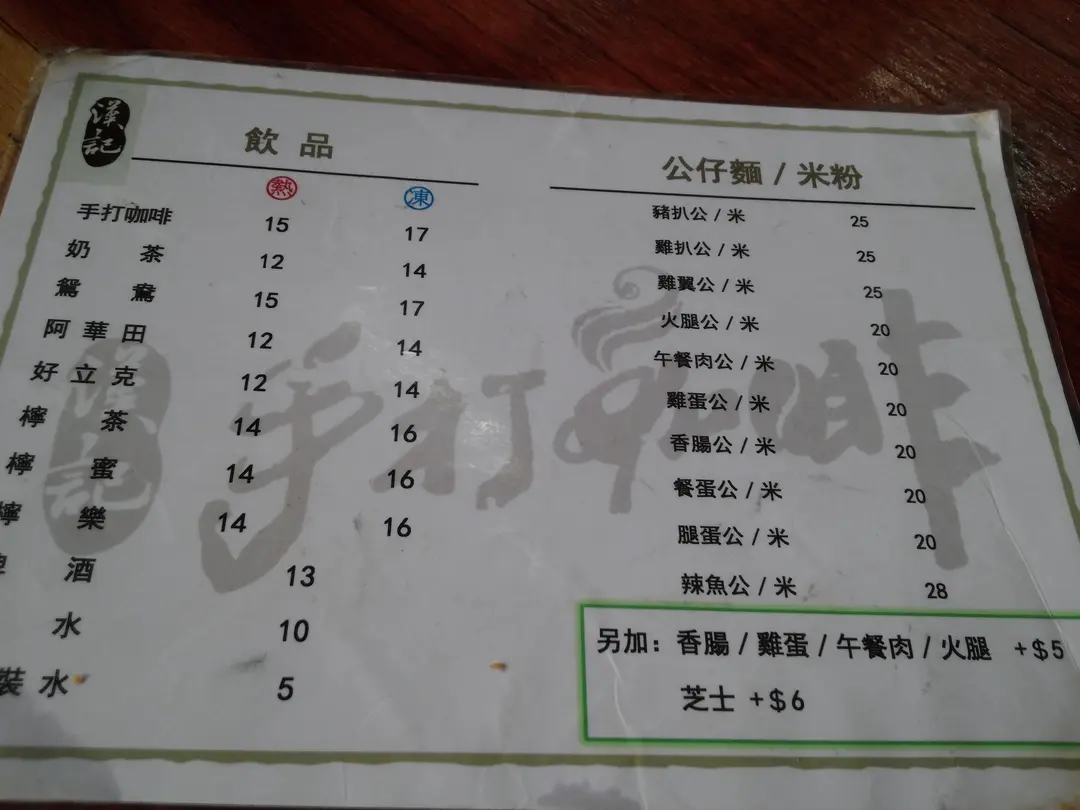 漢記
飲品
熱 凍
手打咖啡 15 17
奶茶 12 14
鴛鴦 15 17
阿華田 12 14
好立克 12 14
檸茶 14 16
檸蜜 14 16
檸樂 14 16
酒 13
水 10
裝水 5
公仔麵 / 米粉
豬扒公 / 米 25
雞扒公 / 米 25
雞翼公 / 米 25
火腿公 / 米 20
午餐肉公 / 米 20
雞蛋公 / 米 20
香腸公 / 米 20
餐蛋公 / 米 20
腿蛋公 / 米 20
辣魚公 / 米 28
另加: 香腸 / 雞蛋 / 午餐肉 / 火腿 +$5
芝士 +$6
漢記
手打咖啡